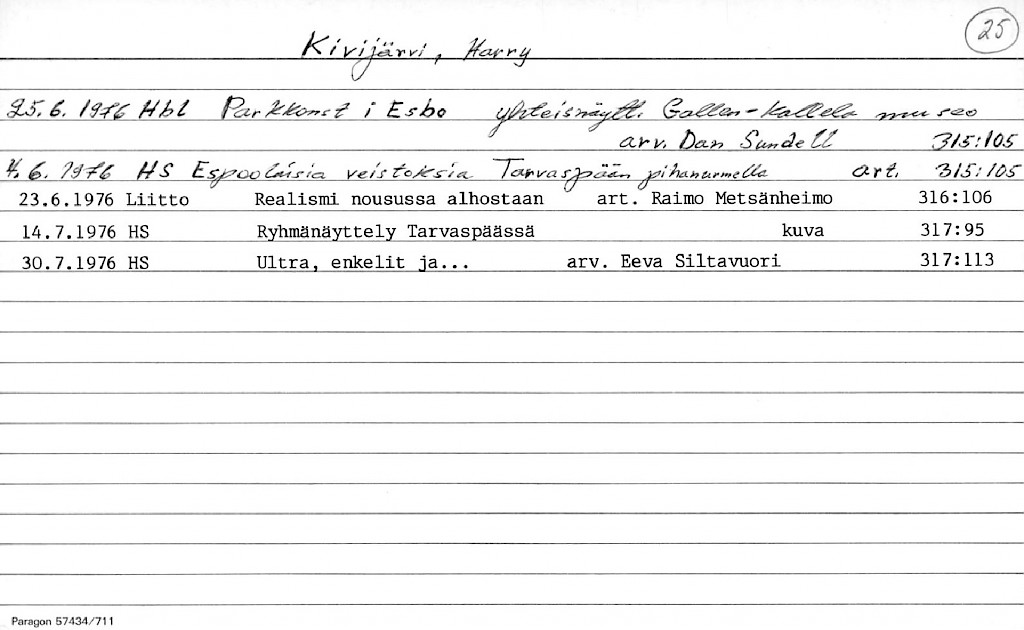 25
Kivijärvi, Harry
25.6.1976 Hbl Parkkonst i Esbo yhteisnäytt. Gallen-Kallela museo
arv. Dan Sundell 315:105
4.6.1976 HS Espoolaisia veistoksia Tarvaspään pihanurmella art. 315:105
23.6.1976 Liitto Realismi nousussa alhostaan art. Raimo Metsänheimo 316:106
14.7.1976 HS Ryhmänäyttely Tarvaspäässä kuva 317:95
30.7.1976 HS Ultra, enkelit ja... arv. Eeva Siltavuori 317:113
Paragon 57434/711